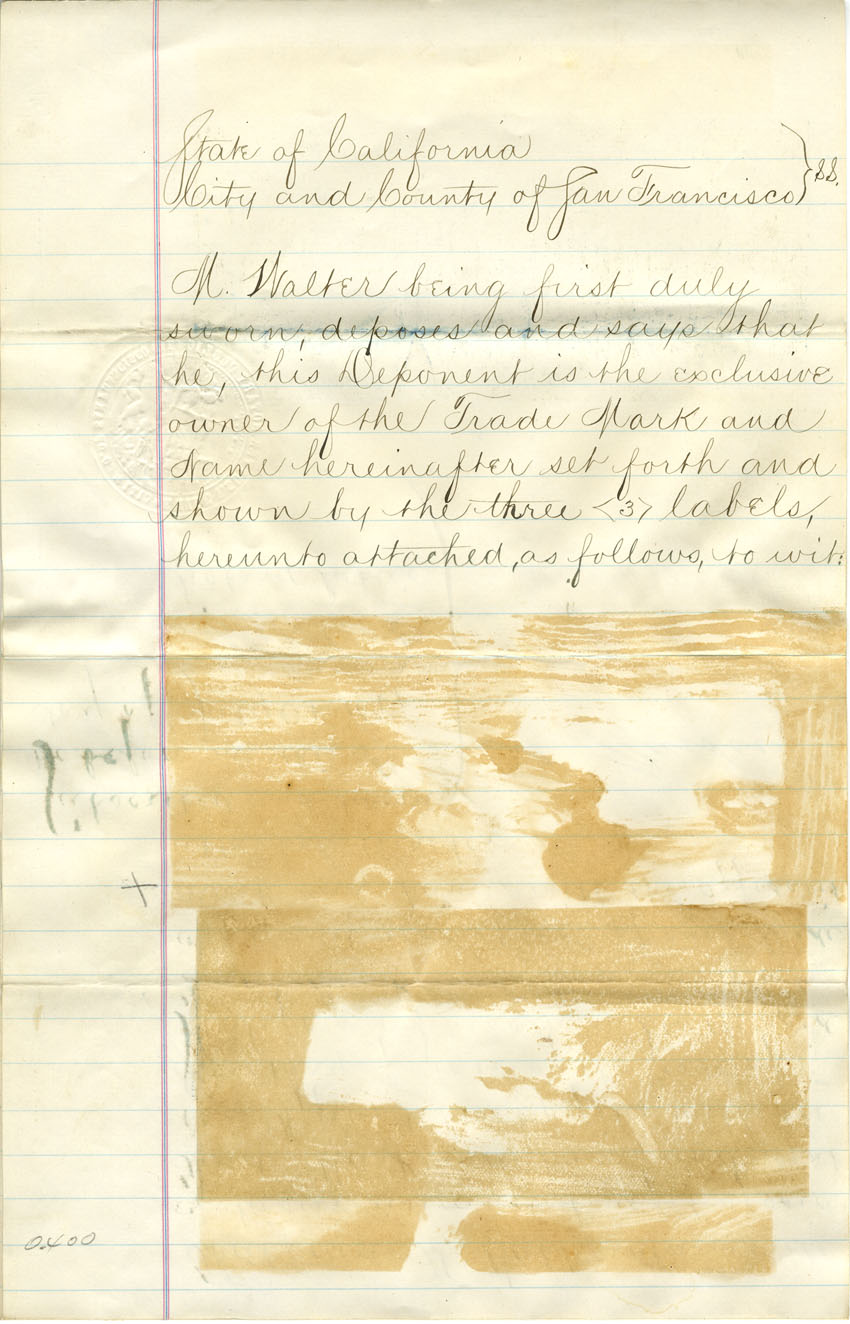 State of California
City and County of San Francisco } SS.
M. Walter being first duly
sworn, deposes and says that
he, this Deponent is the exclusive
owner of the Trade Mark and
Name hereinafter set forth and
shown by the three <3> labels,
hereunto attached, as follows, to wit:
+
0400